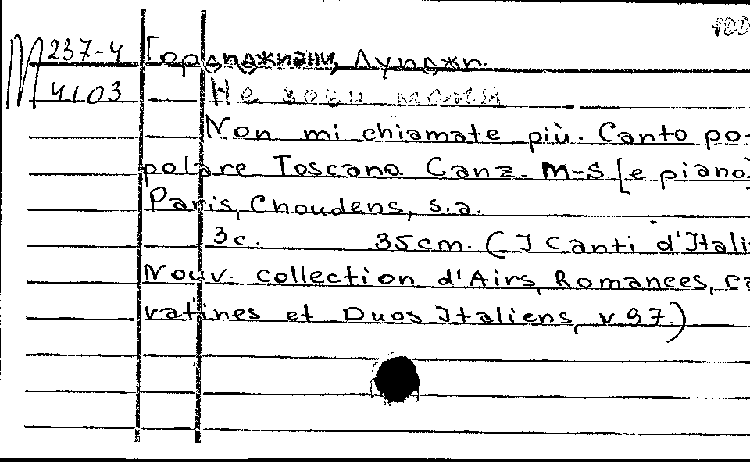 М 237-4
4103
Гордиджиани, Луиджи.
Не зови
Non mi chiamate più. Canto po-
polare Toscano Canz. M-S [e piano]
Paris, Choudens, s.a.
3c. 35cm. (I Canti d'Itali
Nouv. collection d'Airs, Romances, ca
vatines et Duos Italiens, v.97.)